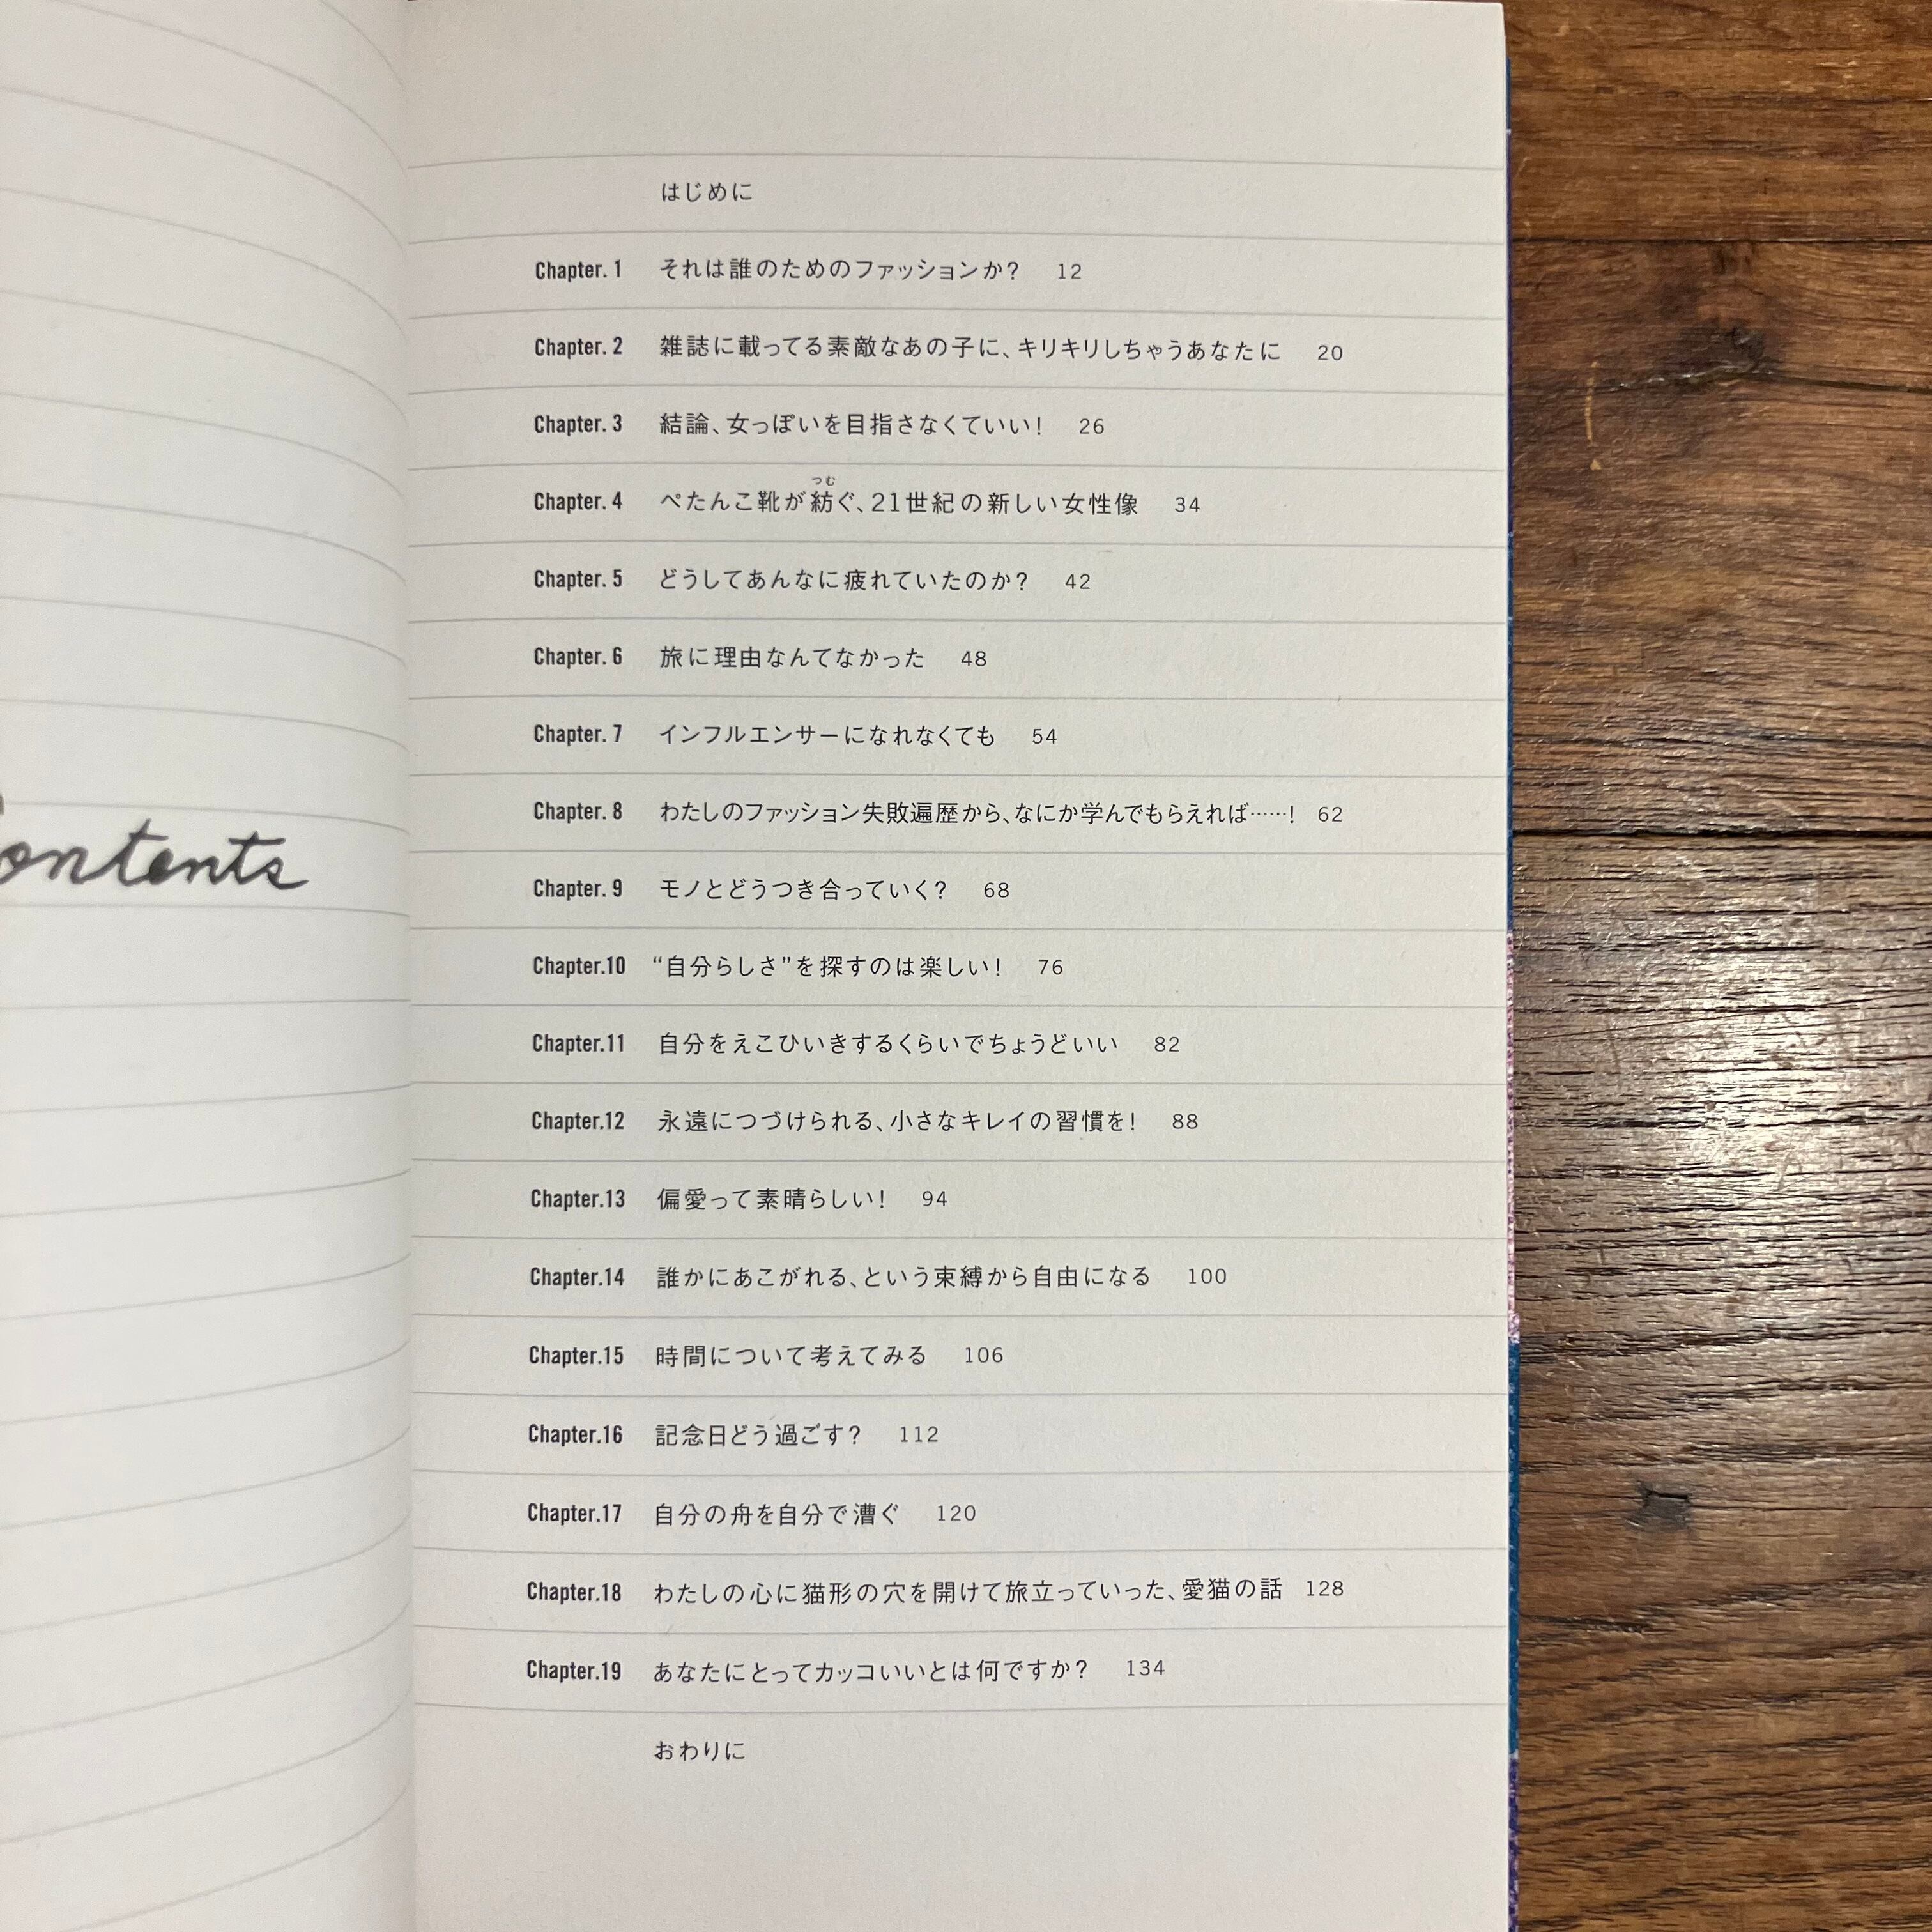 Contents
はじめに
Chapter. 1 それは誰のためのファッションか? 12
Chapter. 2 雑誌に載ってる素敵なあの子に、キリキリしちゃうあなたに 20
Chapter. 3 結論、女っぽいを目指さなくていい! 26
つむ
Chapter. 4 ぺたんこ靴が紡ぐ、21世紀の新しい女性像 34
Chapter. 5 どうしてあんなに疲れていたのか? 42
Chapter. 6 旅に理由なんてなかった 48
Chapter. 7 インフルエンサーになれなくても 54
Chapter. 8 わたしのファッション失敗遍歴から、なにか学んでもらえれば……! 62
Chapter. 9 モノとどうつき合っていく? 68
Chapter.10 “自分らしさ”を探すのは楽しい! 76
Chapter.11 自分をえこひいきするくらいでちょうどいい 82
Chapter.12 永遠につづけられる、小さなキレイの習慣を! 88
Chapter.13 偏愛って素晴らしい! 94
Chapter.14 誰かにあこがれる、という束縛から自由になる 100
Chapter.15 時間について考えてみる 106
Chapter.16 記念日どう過ごす? 112
Chapter.17 自分の舟を自分で漕ぐ 120
Chapter.18 わたしの心に猫形の穴を開けて旅立っていった、愛猫の話 128
Chapter.19 あなたにとってカッコいいとは何ですか? 134
おわりに